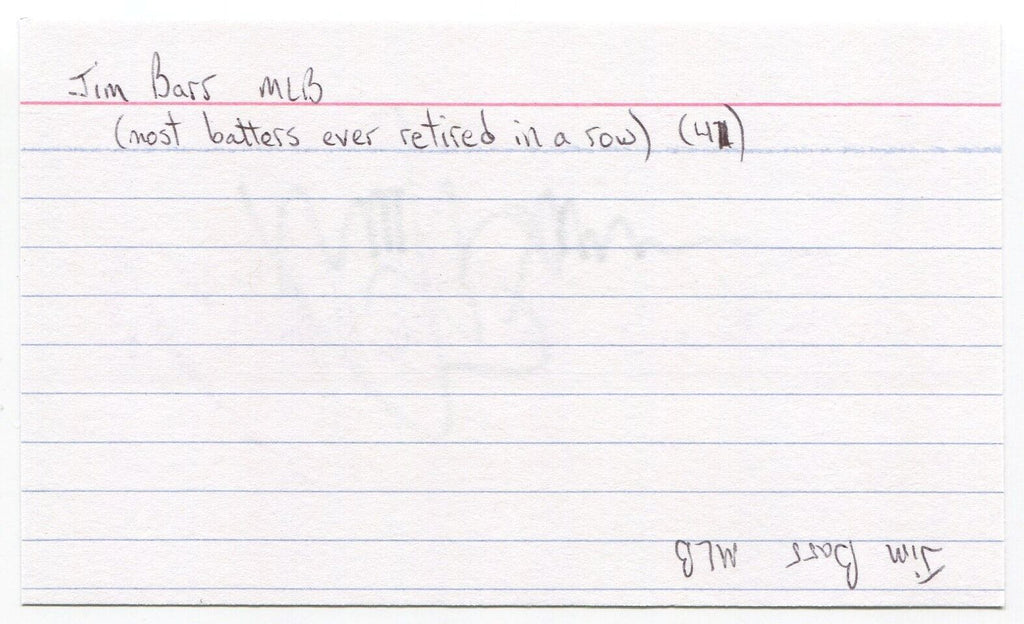 Jim Barr MLB
(most batters ever retired in a row) (41)
Jim Barr MLB